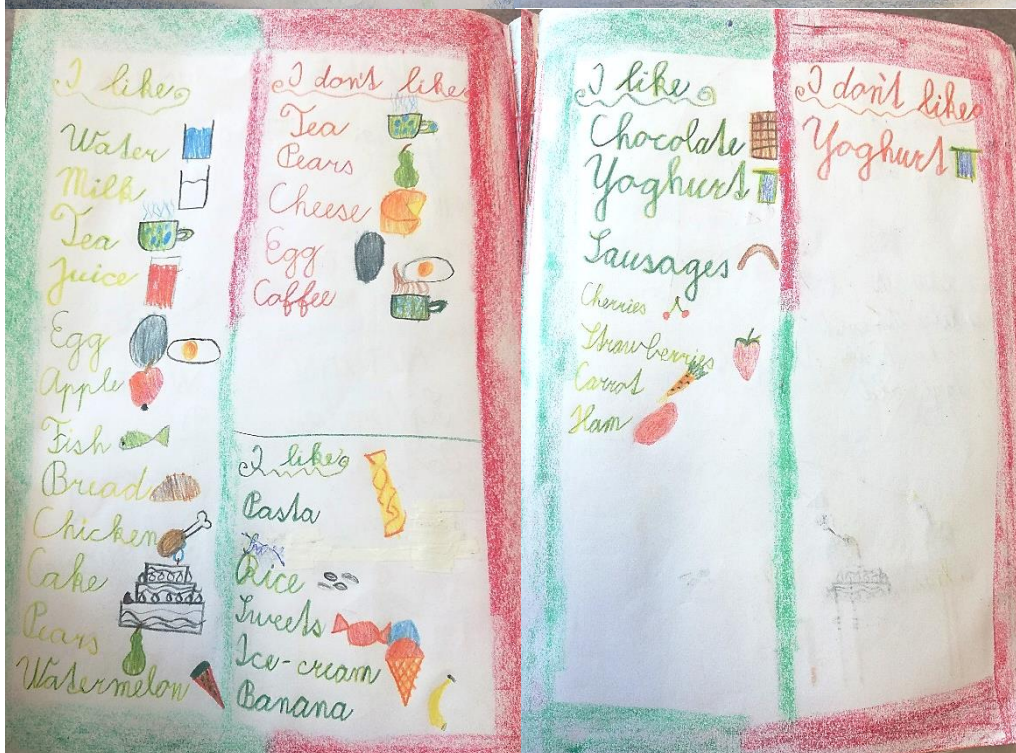 I like
Water
Milk
Tea
Juice
Egg
Apple
Fish
Bread
Chicken
Cake
Pears
Watermelon
I don't like
Tea
Pears
Cheese
Egg
Coffee
I like
Pasta
Rice
Sweets
Ice-cream
Banana
I like
Chocolate
Yoghurt
Sausages
Cherries
Strawberries
Carrot
Ham
I don't like
Yoghurt